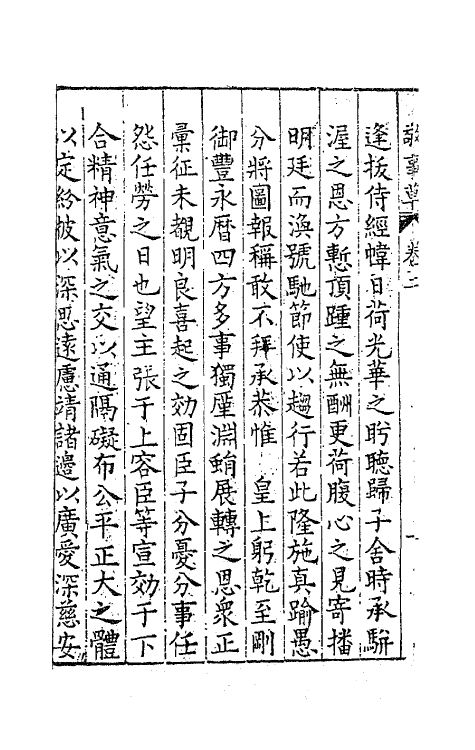 敬事草 卷二
逢拔侍經幃日荷光華之眄聽歸子舍時承駢
渥之恩方慙頂踵之無酬更荷腹心之見寄播
明廷而渙號馳節使以趨行若此隆施真踰愚
分將圖報稱敢不拜承恭惟 皇上躬乾至剛
御豐永曆四方多事獨厪淵蜎展轉之思衆正
彙征未覩明良喜起之効固臣子分憂分事任
怨任勞之日也望主張于上容臣等宣効于下
合精神意氣之交以通隔礙布公平正大之體
以定紛披以深思遠慮靖諸邊以廣愛深慈安